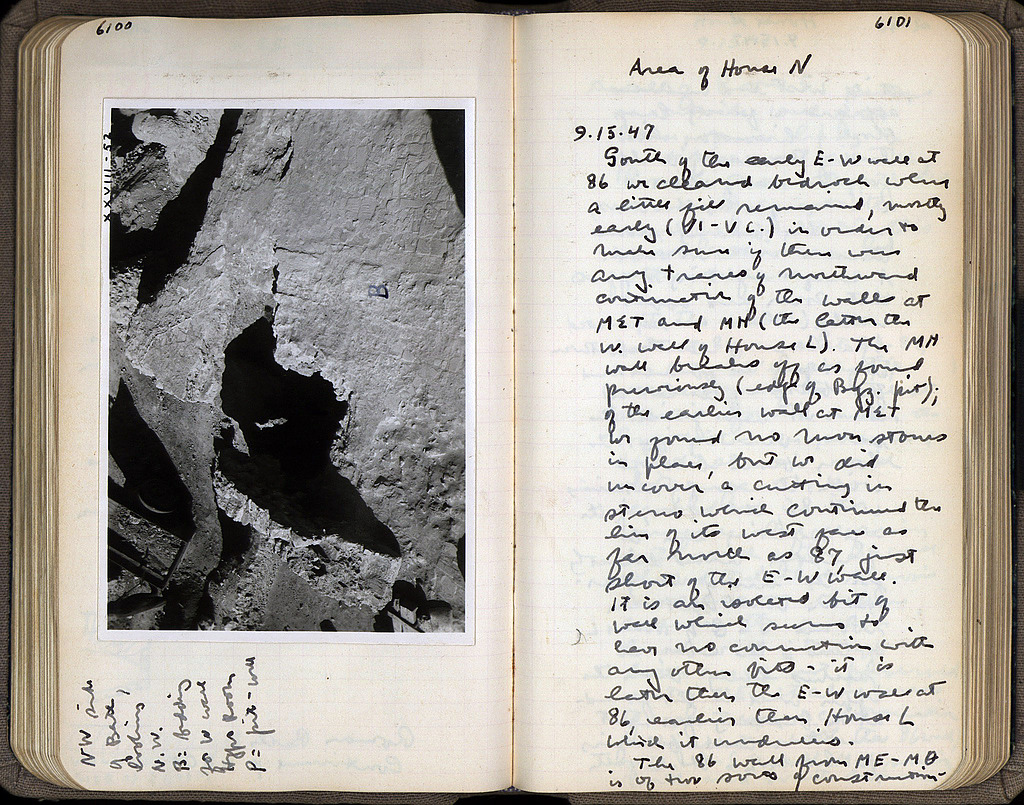 6100
XXVIII-52
B
NW side
of Bath,
looking
N.W.
B = bedding
for W wall
Hypo Room
P = pit-well
6101
Area of House N
9.15.47
South of the early E-W wall at
86 we cleared bedrock where
a little fill remained, mostly
early (VI-V C.) in order to
make sure if there were
any traces of northward
continuation of the walls at
ΜΣΤ and ΜΗ (the latter the
W. wall of House L). The ΜΗ
wall breaks off as found
previously (edge of Byz. pit);
of the earlier wall at ΜΣΤ
we found no more stones
in place, but we did
uncover a cutting in
stereo which continued the
line of its west face as
far north as 87, just
short of the E-W wall.
It is an isolated bit of
wall which seems to
have no connection with
any other bits - it is
later than the E-W wall at
86, earlier than House L
which it underlies.
The 86 wall from ΜΕ-ΜΘ
is of two sorts of construction-